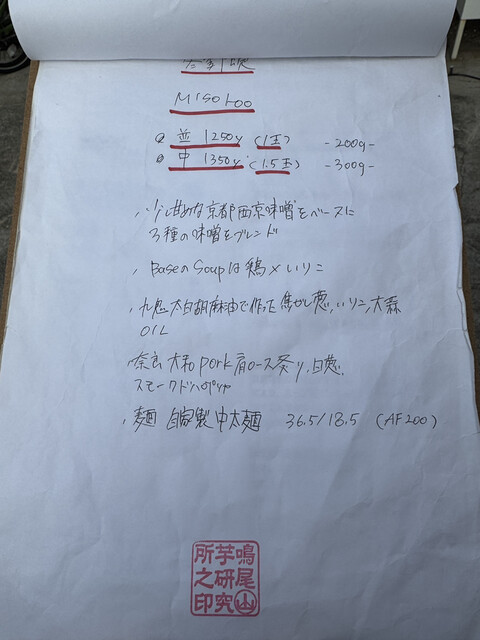 Misoloo
並 1250y (1玉) -200g-
中 1350y (1.5玉) -300g-
少し甘めな京都西京味噌をベースに
3種の味噌をブレンド
BaseのSoupは鶏×いりこ
九鬼太白胡麻油で作った焦がし葱、いりこ、大蒜
OIL
奈良 大和pork肩ロース炙り、白葱、
スモークドパプリカ
麺 自家製中太麺 36.5/18.5 (AF200)
鳴尾山
芋研究
所之印